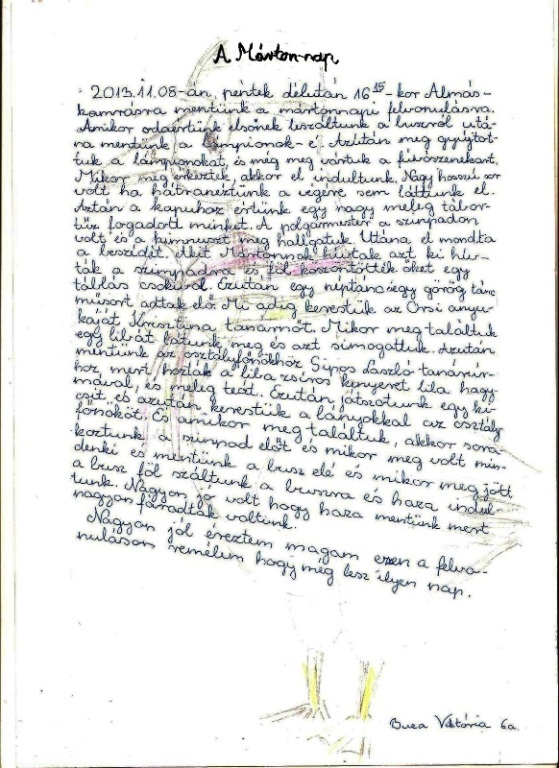 A Márton-nap
2013.11.08-án, péntek délután 16 15-kor Almás-
kamrásra mentünk a mártonnapi felvonulásra.
Amikor odaértünk elsőnek leszálltunk a buszról utá-
na mentünk a lámpionok-é. Azután meg gyújtot-
tuk a lámpionokat, és még meg vártuk a fúvószenekart.
Mikor meg érkeztek, akkor el indultunk. Nagy hosszú sor
volt ha hátranéztünk a végére sem láttunk el.
Aztán a kapuhoz értünk egy nagy meleg tábor-
tűz fogadott minket. A polgármester a színpadon
volt és a himnuszt meg hallgatuk. Utána el mondta
a beszédét. Akit Mártonnak hívtak azt ki hív-
ták a színpadra és föl köszöntötték őket egy
táblás csokival. Ezután egy néptánc egy görög tánc
műsort adtak elő. Mi adig kerestük az Orsi anyu-
káját Krisztina tanárnőt. Mikor meg találtuk
egy libát látunk meg és azt simogattuk. Azután
mentünk az osztályfőnökhöz Sipos László tanárúr-
hoz, mert hozták a lila zsíros kenyeret lila hagy-
mával, és meleg teát. Ezután játszotunk egy ki-
csit, és azután kerestük a lányokkal az osztály
főnököt. És amikor meg találtuk, akkor sora-
koztunk a színpad előt és mikor meg volt min-
denki és mentünk a busz elé és mikor meg jött
a busz föl száltunk a buszra és haza indul-
tunk. Nagyon jó volt hogy haza mentünk mert
nagyon fáradtak voltunk.
Nagyon jól éreztem magam ezen a felvo-
nuláson remélem hogy még lesz ilyen nap.
Viktória 6a